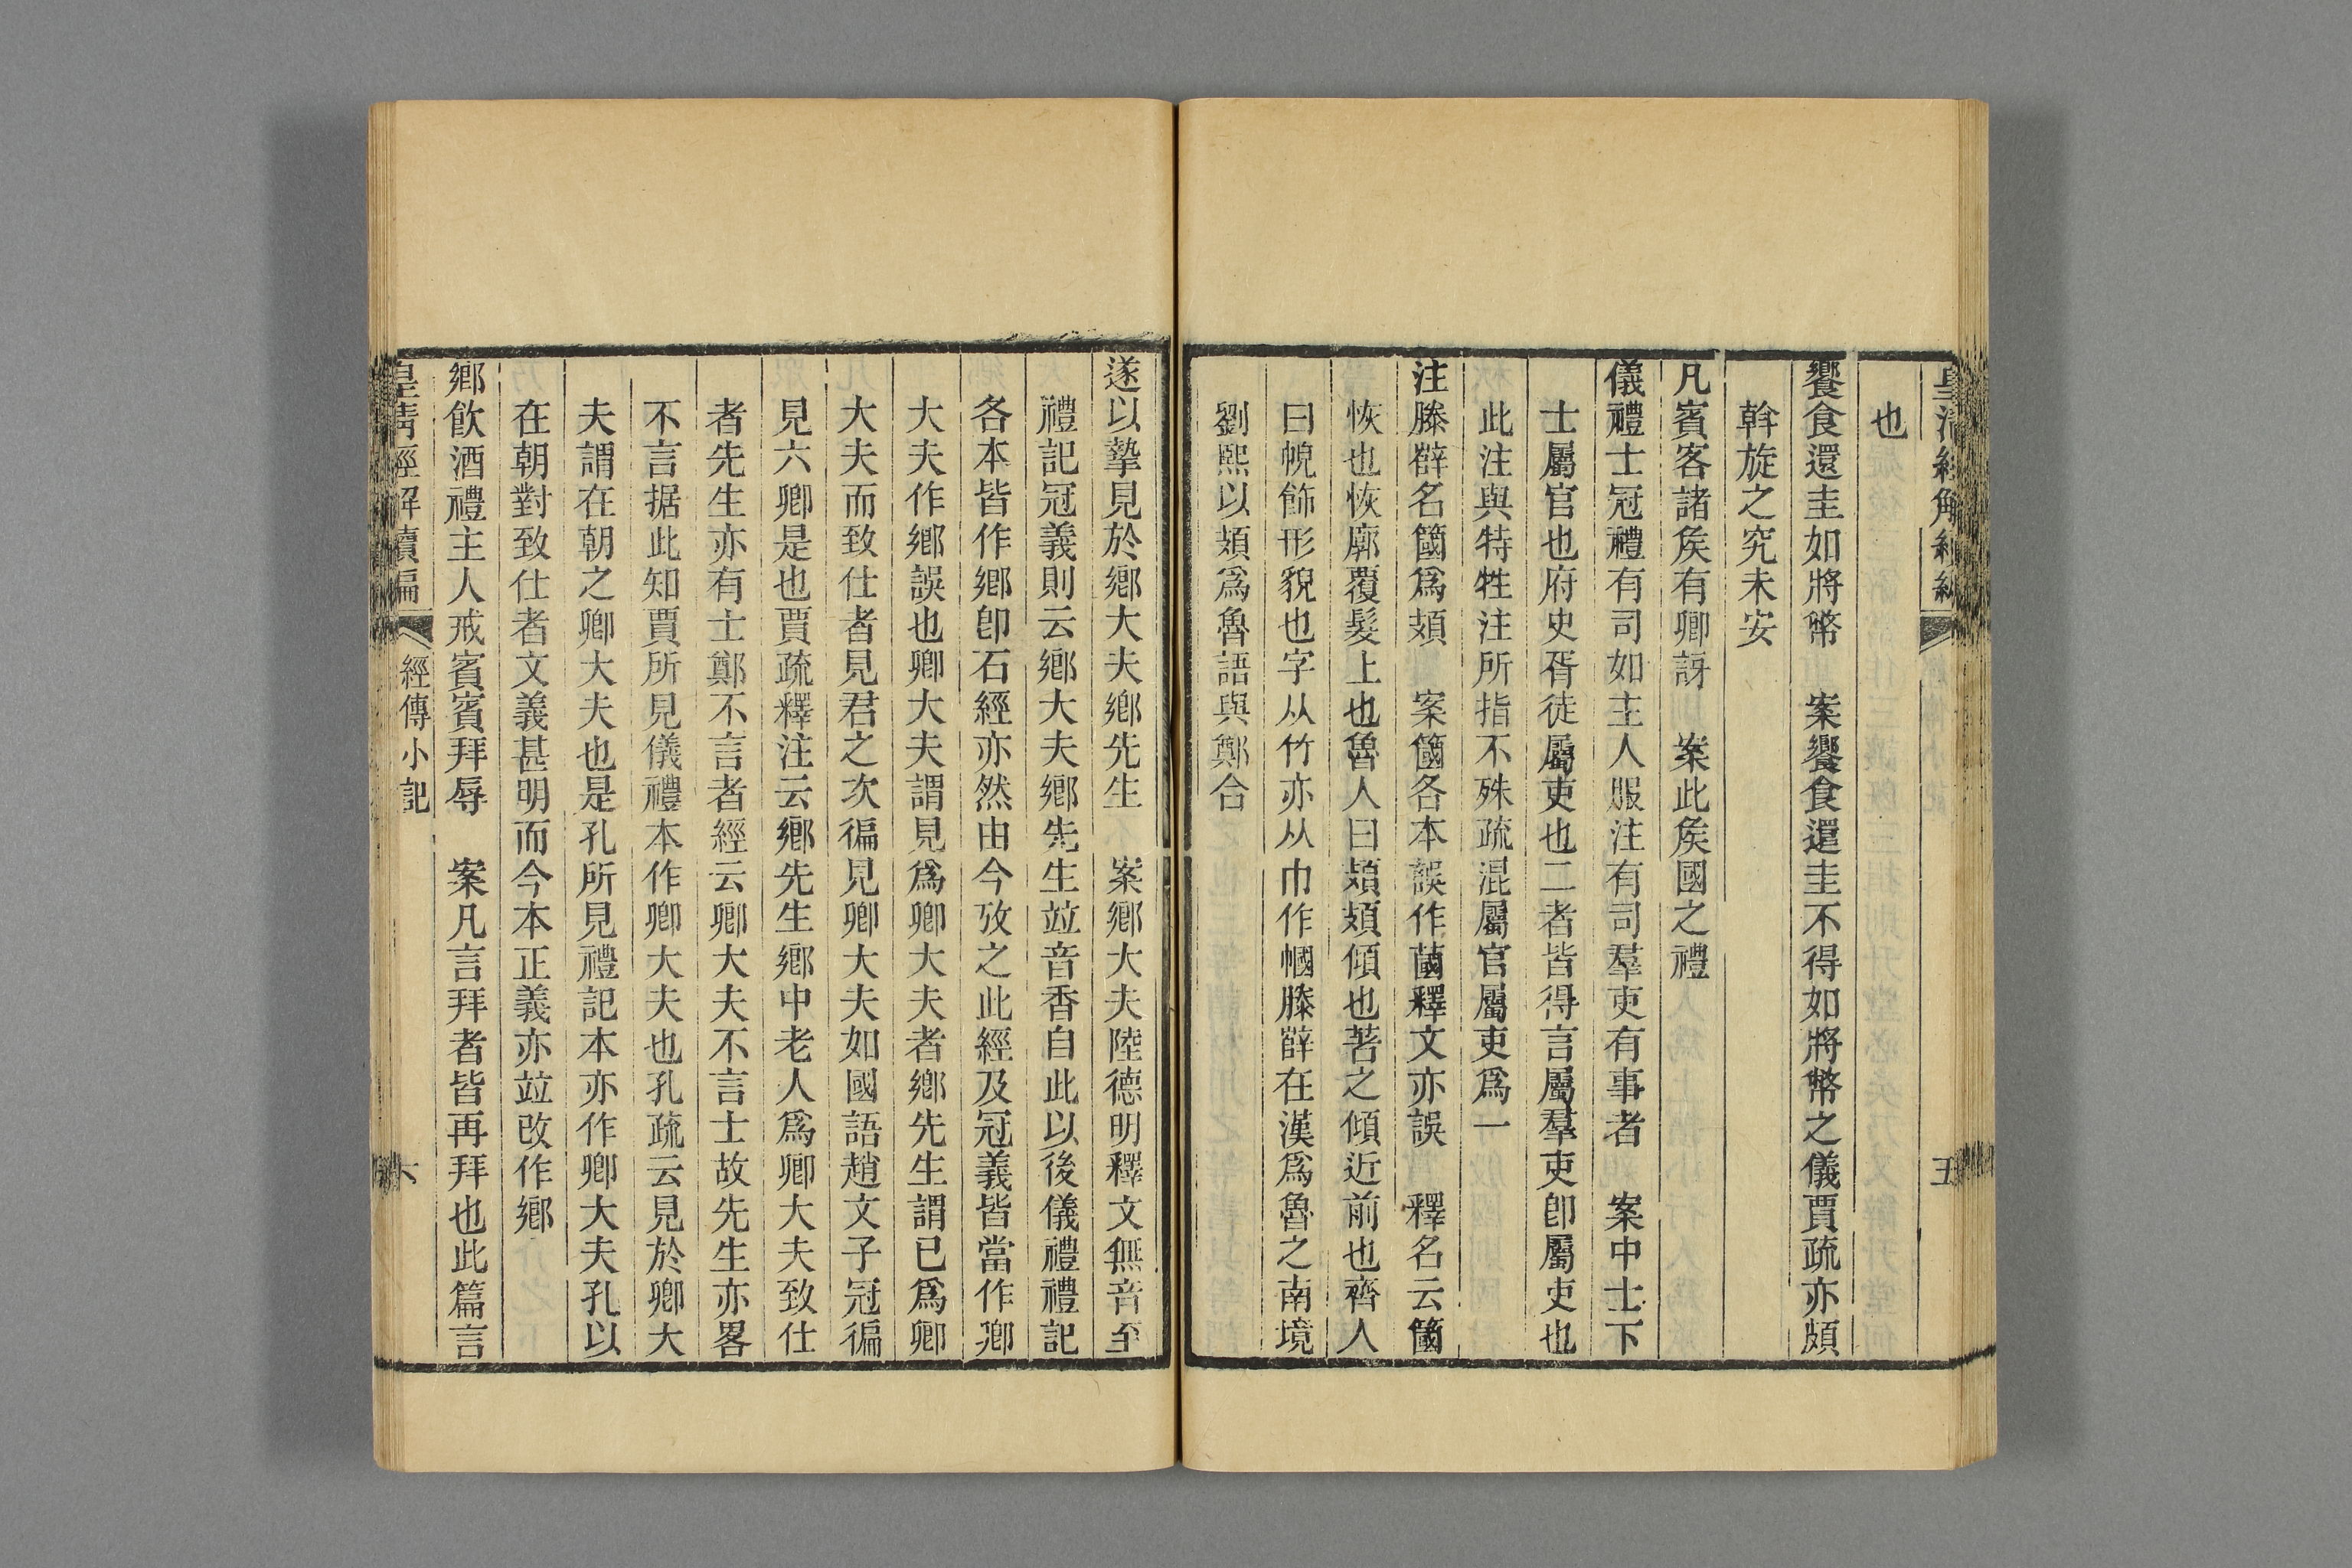 也
饗食還圭如將幣　案饗食還圭不得如將幣之儀賈疏亦頗
斡旋之究未安
凡賓客諸矦有卿訝　案此矦國之禮
儀禮士冠禮有司如主人服注有司羣吏有事者　案中士下
士屬官也府史胥徒屬吏也二者皆得言屬羣吏卽屬吏也
此注與特牲注所指不殊疏混屬官屬吏爲一
注滕薛名簂爲頍　案簂各本誤作蔮釋文亦誤　釋名云簂
恢也恢廓覆髮上也魯人曰頍頍傾也著之傾近前也齊人
曰帨飾形貌也字从竹亦从巾作幗滕薛在漢爲魯之南境
劉熙以頍爲魯語與鄭合
五
遂以摯見於鄕大夫鄕先生　案鄕大夫陸德明釋文無音至
禮記冠義則云鄕大夫鄕先生竝音香自此以後儀禮禮記
各本皆作鄕卽石經亦然由今攷之此經及冠義皆當作卿
大夫作鄕誤也卿大夫謂見爲卿大夫者鄕先生謂已爲卿
大夫而致仕者見君之次徧見卿大夫如國語趙文子冠徧
見六卿是也賈疏釋注云鄕先生鄕中老人爲卿大夫致仕
者先生亦有士鄭不言者經云卿大夫不言士故先生亦畧
不言据此知賈所見儀禮本作卿大夫也孔疏云見於卿大
夫謂在朝之卿大夫也是孔所見禮記本亦作卿大夫孔以
在朝對致仕者文義甚明而今本正義亦竝改作鄕
鄕飮酒禮主人戒賓賓拜辱　案凡言拜者皆再拜也此篇言
皇清經解續編　經傳小記　六